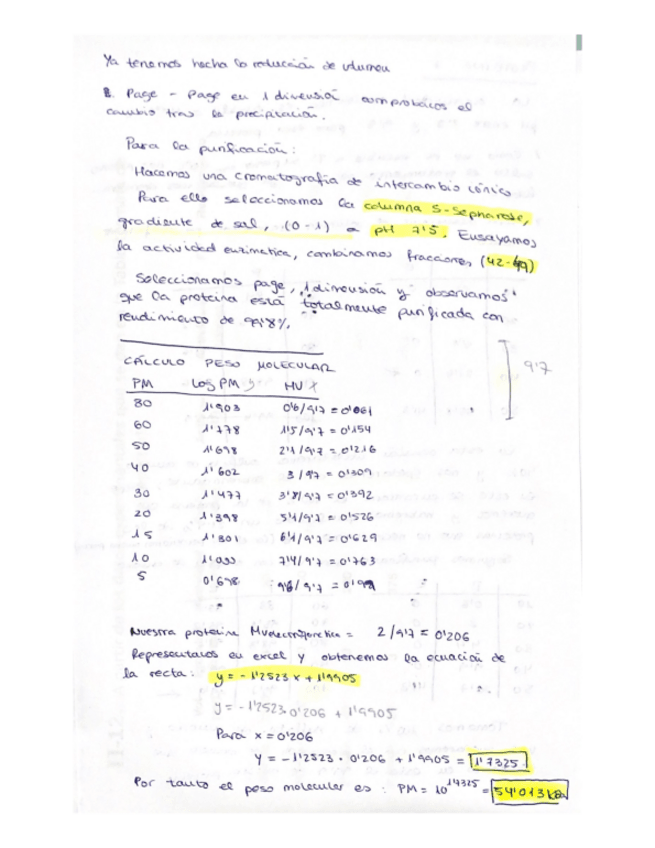 Ya tenemos hecha la reducción de volumen
B. Page - Page en 1 dimensión comprobamos el
cambio tras la precipitación.
Para la purificación:
Hacemos una cromatografía de intercambio iónico
Para ello seleccionamos la columna S-Sepharose,
gradiente de sal, (0-1) a pH 7'5. Ensayamos
la actividad enzimática, combinamos fracciones (42-49)
Seleccionamos page, 1 dimensión y observamos
que la proteína está totalmente purificada con
rendimiento de 99'8%.
9'7
CÁLCULO PESO MOLECULAR
PM Log PM y MV x
80 1'903 0'6/9'7 = 0'061
60 1'778 1'5/9'7 = 0'154
50 1'698 2'1/9'7 = 0'216
40 1'602 3/9'7 = 0'309
30 1'477 3'8/9'7 = 0'392
20 1'398 5'1/9'7 = 0'526
15 1'301 6'1/9'7 = 0'629
10 7'4/9'7 = 0'763
5 0'698
Nuestra proteína Mvelectroforetica = 2/9'7 = 0'206
Representamos en excel y obtenemos la ecuación de
la recta: y = -1'2523x + 1'9905
y = -1'2523·0'206 + 1'9905
Para x = 0'206
y = -1'2523 · 0'206 + 1'9905 = 1'7325.
Por tanto el peso molecular es: PM = 10 = 54'013 kDa